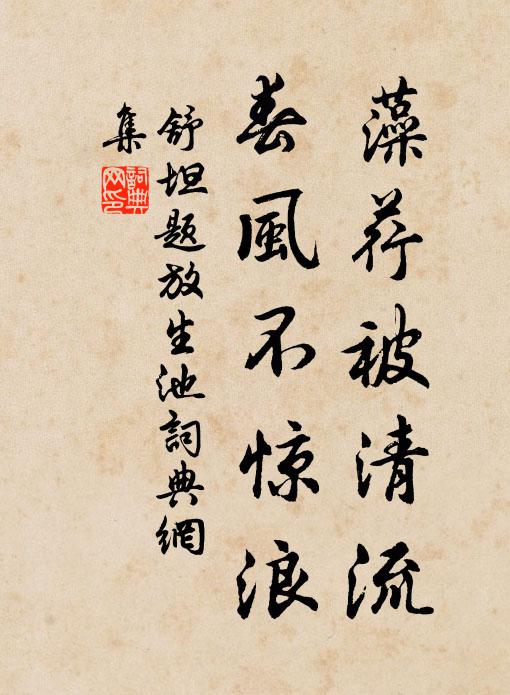 藻荇被清流
春風不惊浪
舒坦题放生池詞典網
集
詞典
网印